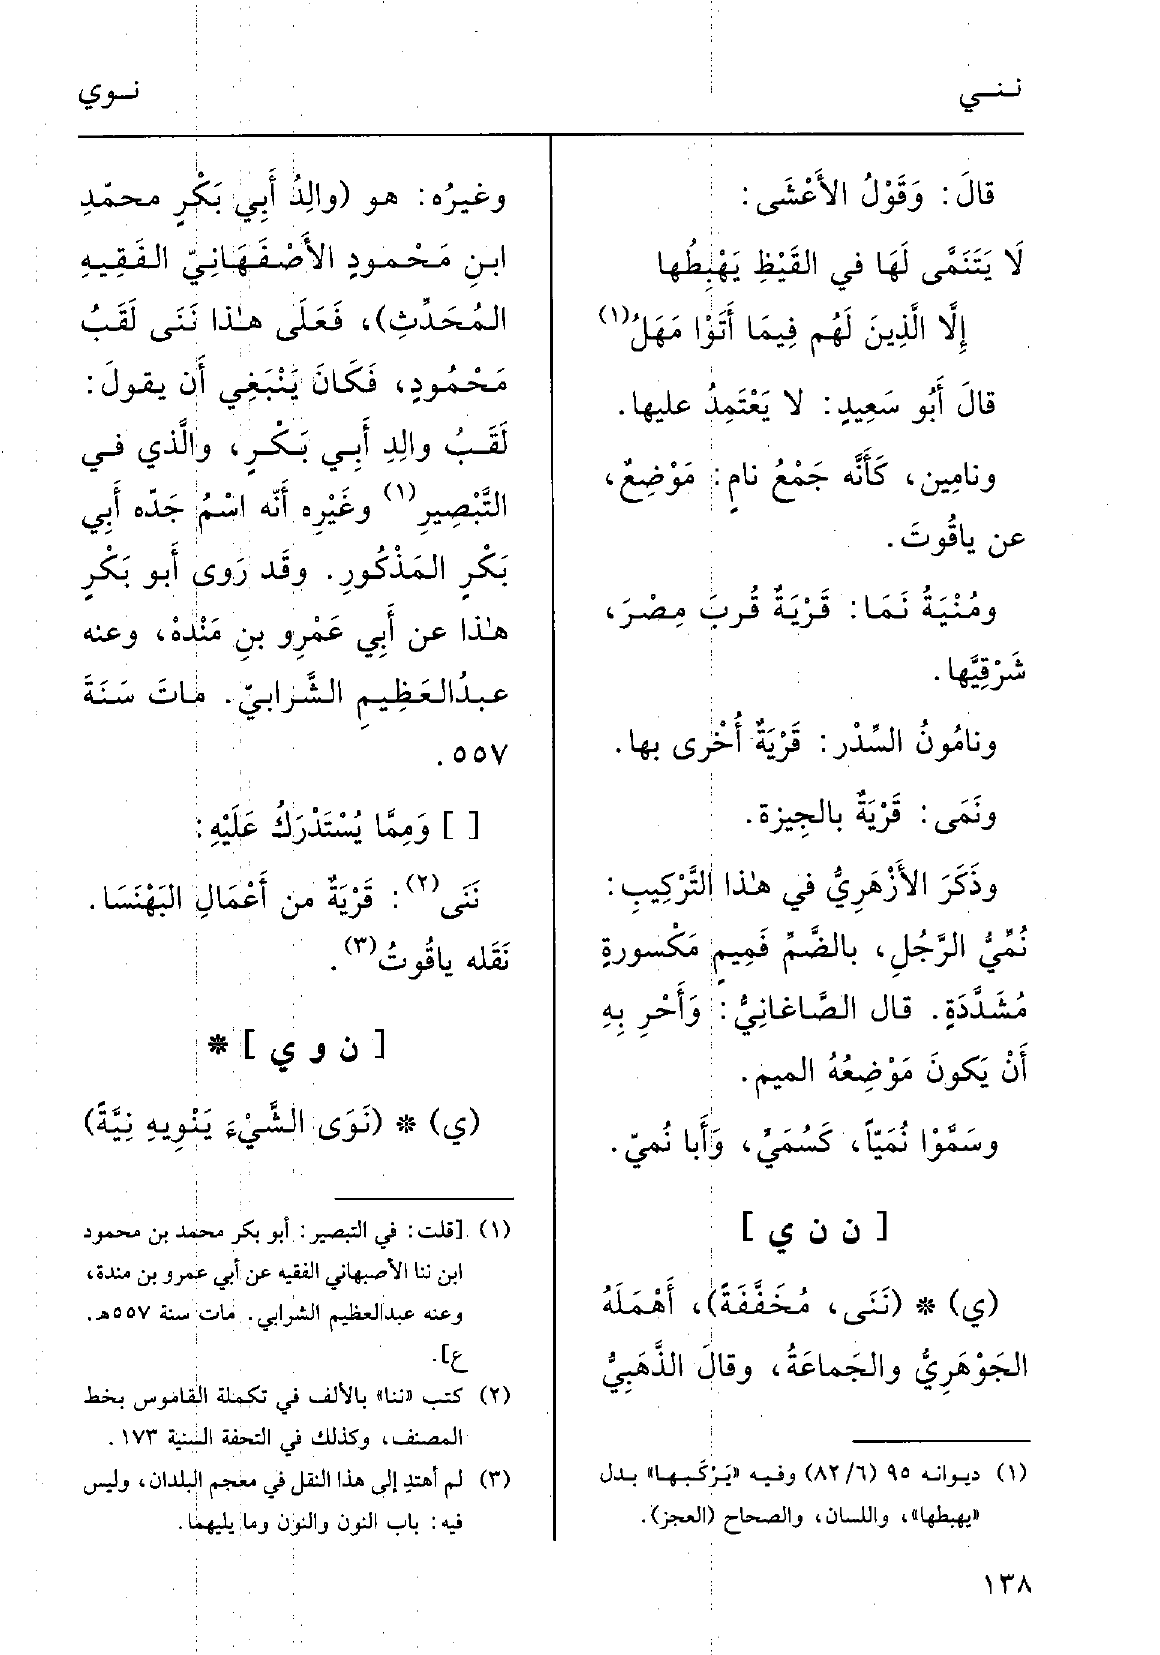 نـنـي
نـوي
قالَ: وَقَوْلُ الأَعْشَى:
لَا يَتَنَمَّى لَهَا في القَيْظِ يَهْبِطُها
إِلَّا الَّذِينَ لَهُم فِيمَا أَتَوْا مَهَلُ(١)
قالَ أَبُو سَعِيدٍ: لا يَعْتَمِدُ عليها.
ونامِين، كَأَنَّه جَمْعُ نامٍ: مَوْضِعٌ،
عن ياقُوتَ.
ومُنْيَةُ نَمَا: قَرْيَةٌ قُربَ مِصْرَ،
شَرْقِيَّها.
ونامُونُ السِّدْر: قَرْيَةٌ أُخْرى بها.
ونَمَى: قَرْيَةٌ بالجِيزة.
وذَكَرَ الأَزْهَرِيُّ في هٰذا التَّرْكِيبِ:
نُمِّيُّ الرَّجُلِ، بالضَّمِّ فَمِيمٍ مَكْسورةٍ
مُشَدَّدَةٍ. قال الصَّاغانِيُّ: وَأَحْرِ بِهِ
أَنْ يَكونَ مَوْضِعُهُ الميم.
وسَمَّوْا نُمَيّاً، كَسُمَيٍّ، وَأَبا نُميّ.
[ ن ن ي ]
(ي) * (نَنَى، مُخَفَّفَةً)، أَهْمَلَهُ
الجَوْهَرِيُّ والجَماعَةُ، وقالَ الذَّهَبِيُّ
(١) ديوانه ٩٥ (٨٢/٦) وفيه «يَرْكَبها» بدل
«يهبطها»، واللسان، والصحاح (العجز).
وغيرُه: هو (والِدُ أَبِي بَكْرٍ محمّدِ
ابنِ مَحْمودٍ الأَصْفَهَانِيّ الفَقِيهِ
المُحَدِّثِ)، فَعَلَى هٰذا نَنَى لَقَبُ
مَحْمُودٍ، فَكَانَ يَنْبَغِي أَن يقولَ:
لَقَبُ والِدِ أَبِي بَكْرٍ، والَّذي في
التَّبْصِيرِ(١) وغَيْرِه أَنَّه اسْمُ جَدّه أَبِي
بَكْرٍ المَذْكُورِ. وقَد رَوى أَبو بَكْرٍ
هٰذا عن أَبِي عَمْرِو بنِ مَنْدَهْ، وعنه
عبدُالعَظِيمِ الشَّرابيّ. ماتَ سَنَةَ
٥٥٧.
[ ] وَمِمَّا يُسْتَدْرَكُ عَلَيْهِ:
نَنَى(٢): قَرْيَةٌ من أَعْمَالِ البَهْنَسَا.
نَقَله ياقُوتُ(٣).
[ ن و ي ] *
(ي) * (نَوَى الشَّيْءَ يَنْوِيهِ نِيَّةً)
(١) [قلت: في التبصير: أبو بكر محمد بن محمود
ابن ننا الأصبهاني الفقيه عن أبي عمرو بن مندة،
وعنه عبدالعظيم الشرابي. مات سنة ٥٥٧هـ.
ع].
(٢) كتب «ننا» بالألف في تكملة القاموس بخط
المصنف، وكذلك في التحفة السنية ١٧٣.
(٣) لم أهتدِ إلى هذا النقل في معجم البلدان، وليس
فيه: باب النون والنون وما يليهما.
١٣٨